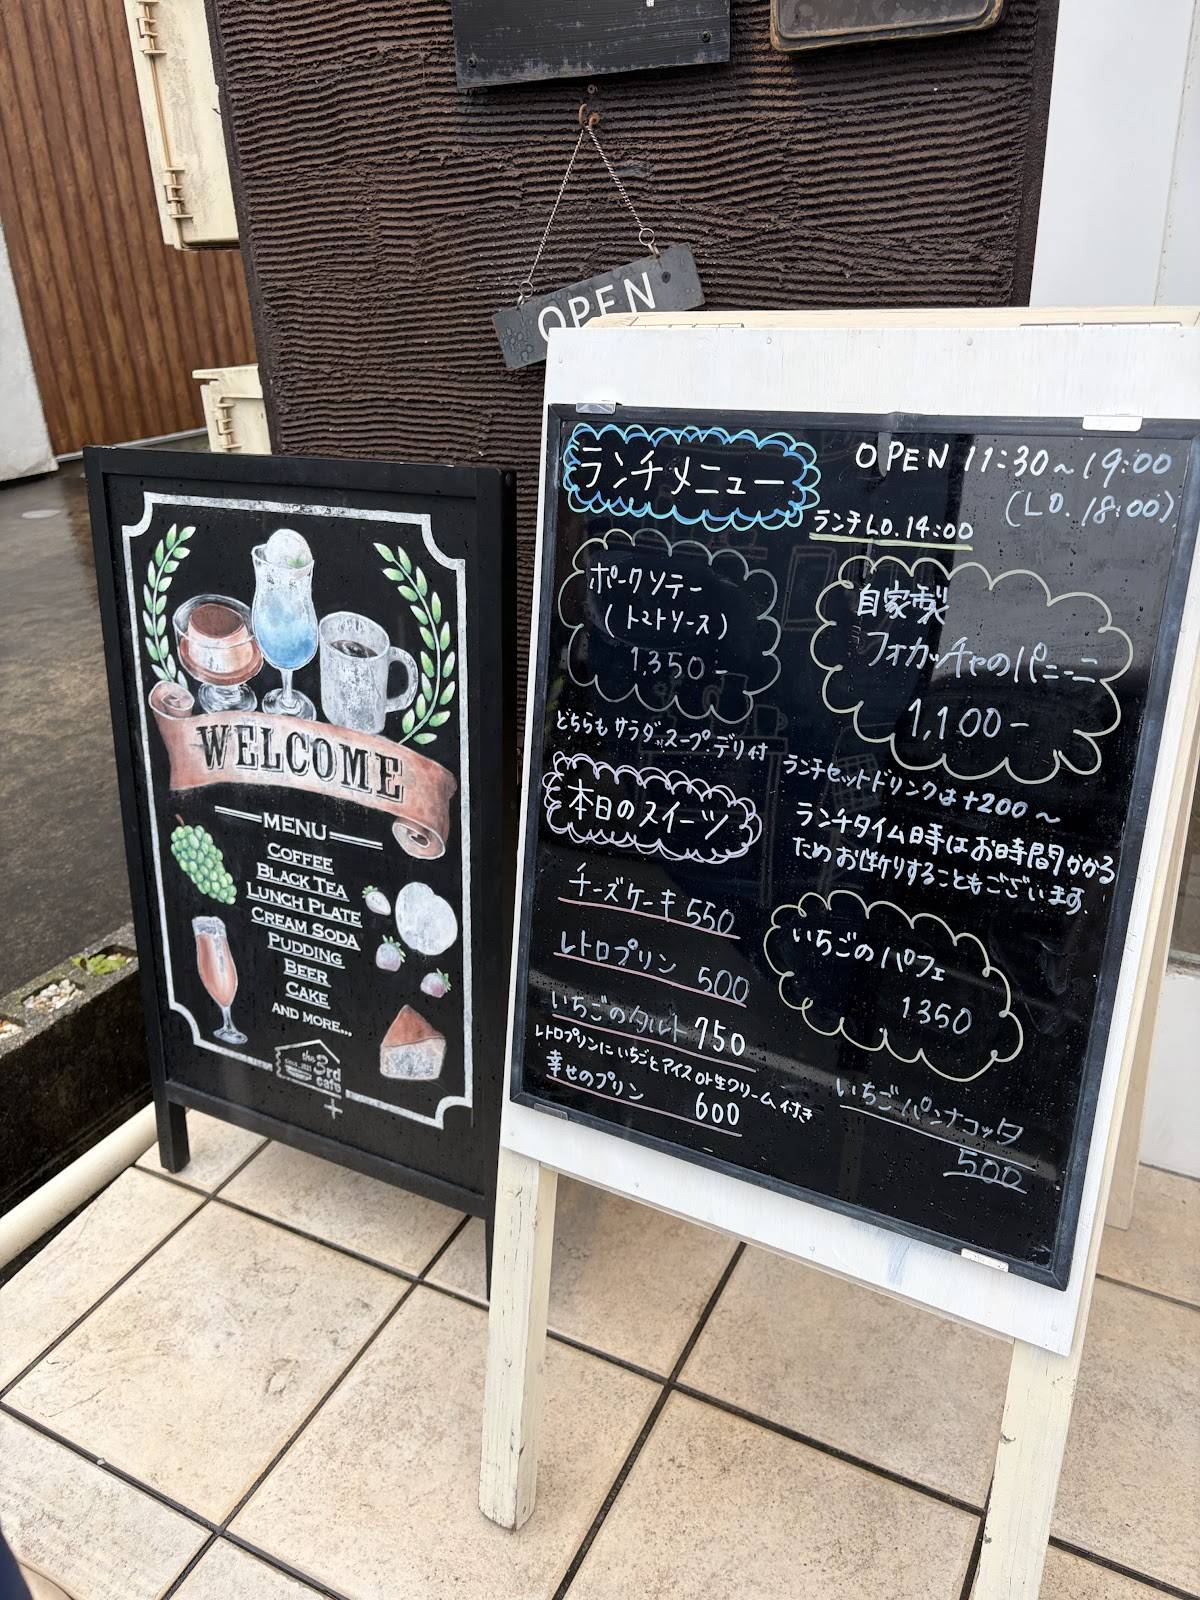 OPEN
WELCOME
MENU
COFFEE
BLACK TEA
LUNCH PLATE
CREAM SODA
PUDDING
BEER
CAKE
AND MORE...
the 3rd
cafe
ランチメニュー
OPEN 11:30~19:00
(LO. 18:00)
ランチLO. 14:00
ポークソテー
(トマトソース)
1350-
自家製
フォカッチャのパニーニ
1,100-
どちらもサラダ、スープ、デリ付
ランチセットドリンクは+200~
ランチタイム時はお時間かかる
ためお断りすることもございます。
本日のスイーツ
チーズケーキ 550
レトロプリン 500
いちごのタルト 750
レトロプリンにいちごとアイス or 生クリーム付き
幸せのプリン 600
いちごのパフェ
1350
いちごパンナコッタ
500